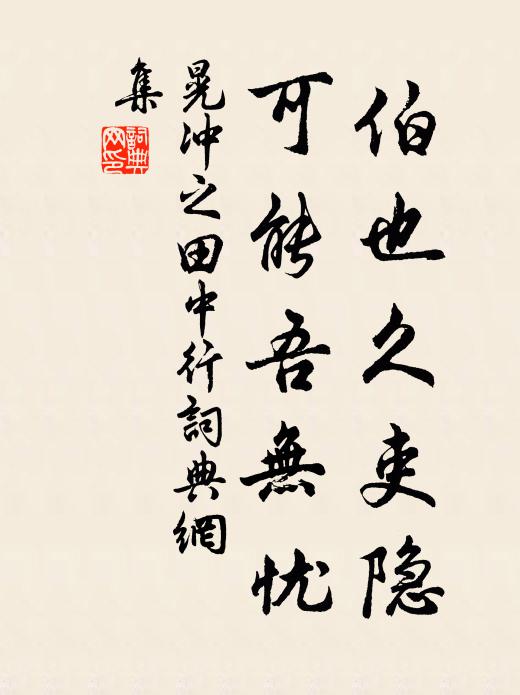 伯也久吏隐
可能吾無忧
晃冲之田中行詞典網
集
詞典網印